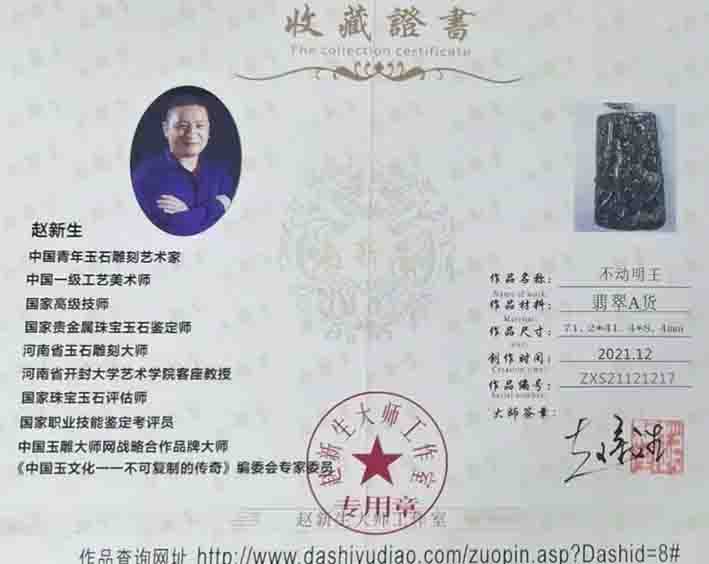 收藏證書
The collection certificate
赵新生
中国青年玉石雕刻艺术家
中国一级工艺美术师
国家高级技师
国家贵金属珠宝玉石鉴定师
河南省玉石雕刻大师
河南省开封大学艺术学院客座教授
国家珠宝玉石评估师
国家职业技能鉴定考评员
中国玉雕大师网战略合作品牌大师
《中国玉文化一一不可复制的传奇》编委会专家委员
作品名称: 不动明王
Name of work:
作品材料: 翡翠A货
Material:
作品尺寸: 71.2*41.4*8.4mm
size:
创作时间: 2021.12
Creation time:
作品编号: ZXS21121217
Serial number:
大师签章:
赵新生大师工作室
专用章
赵新生大师工作室
作品查询网址 http://www.dashiyudiao.com/zuopin.asp?Dashid=8#